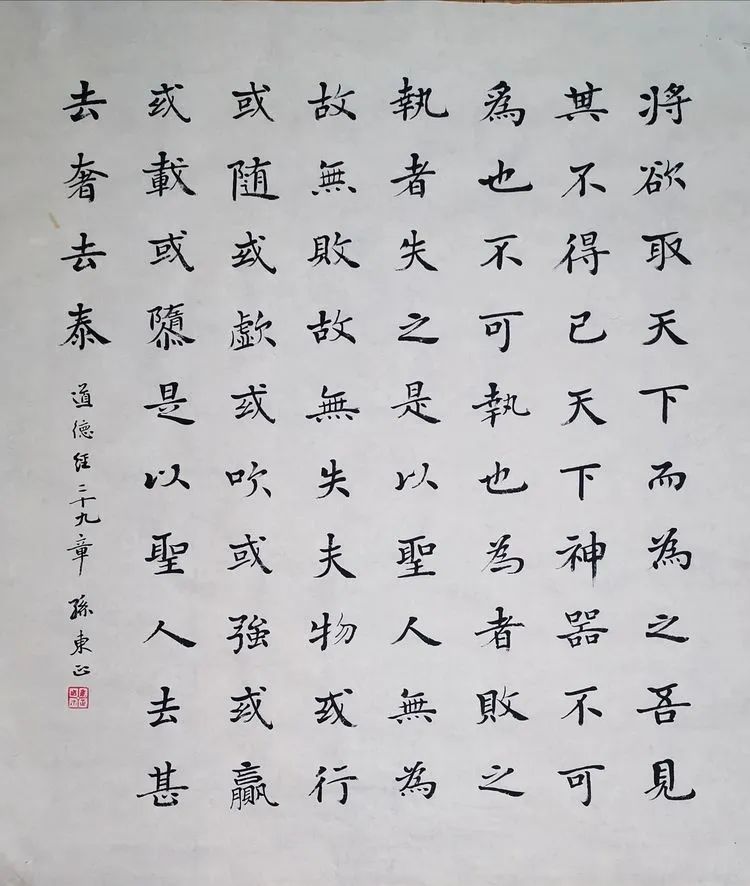 將欲取天下而為之吾見
其不得已天下神器不可
為也不可執也為者敗之
執者失之是以聖人無為
故無敗故無失夫物或行
或随或歔或吹或強或贏
或載或隳是以聖人去甚
去奢去泰
道德經二十九章 孫東正